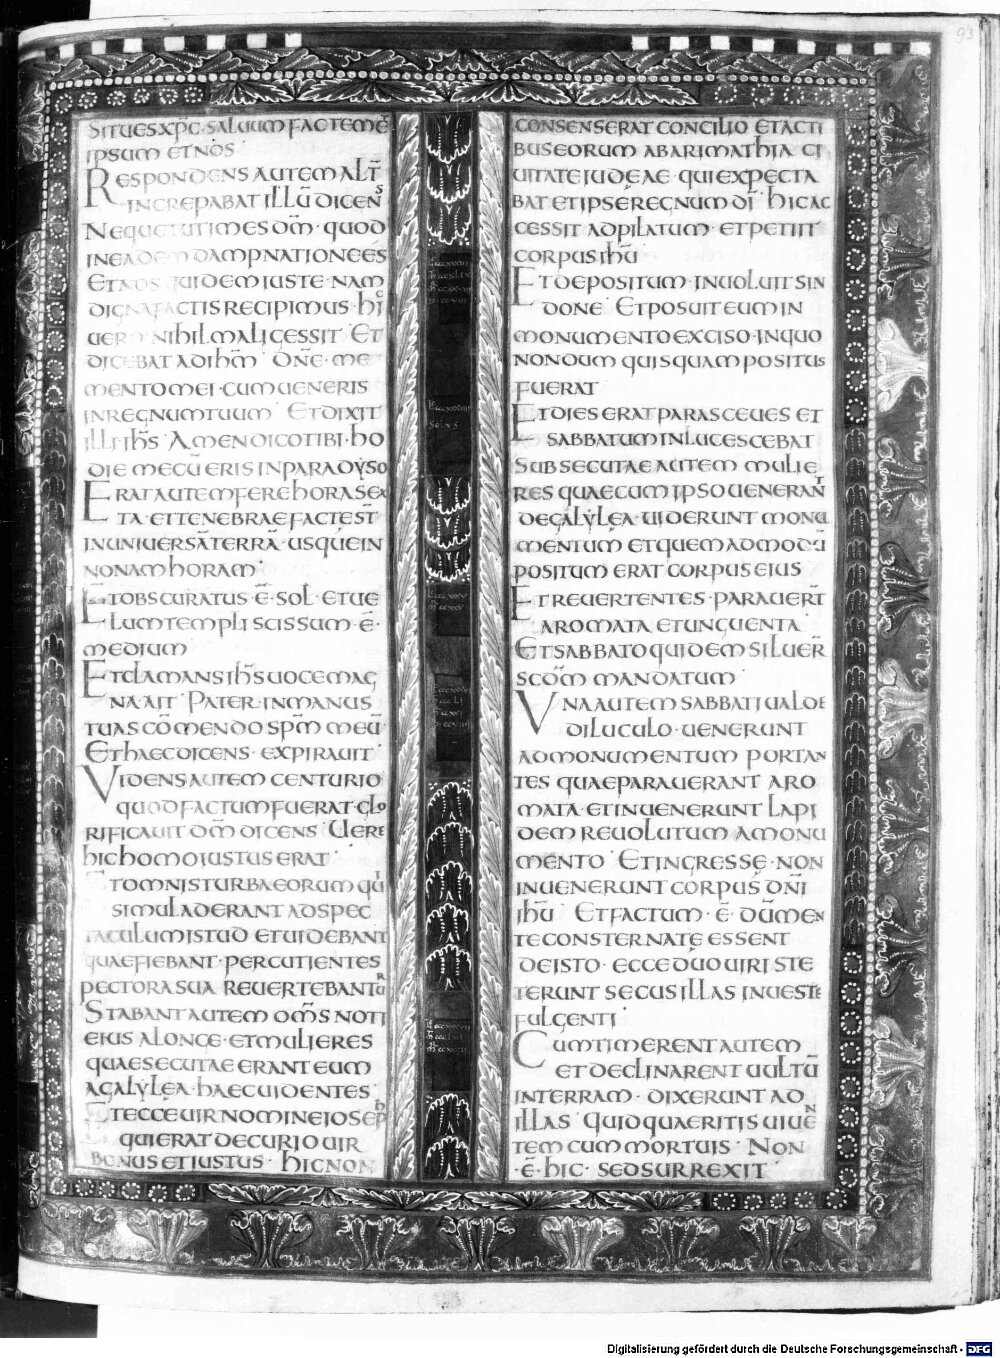 SITUESXPC·SALUUM FACTEMĒ
IPSUM ETNOS
RESPONDENS AUTEM ALT̄
INCREPABAT ILLŪ DICENS
NEQUETUTIMES DM̄·QUOD
INEADEM DAMPNATIONE ES
ETNOS QUIDEM IUSTE·NAM
DIGNA FACTIS RECIPIMUS·HIC
UERO NIHIL MALI GESSIT ET
DICEBAT ADIHM̄ DN̄E·ME
MENTOMEI·CUMUENERIS
INREGNUMTUUM ETDIXIT
ILLI IHS̄ AMENDICOTIBI·HO
DIE MECŪ ERIS INPARADYSO
ERAT AUTEM FERE HORA SEX
TA·ETTENEBRAE FACTEST̄
INUNIUERSĀ TERRĀ·USQUEIN
NONAM HORAM
ETOBSCURATUS·Ē·SOL·ETUE
LUMTEMPLI SCISSUM·Ē·
MEDIUM
ETCLAMANS IHS̄ UOCEMAG
NA·AIT·PATER·INMANUS
TUAS CŌMENDO SPM̄ MEŪ
ETHAECDICENS·EXPIRAUIT
VIDENS AUTEM CENTURIO
QUOD FACTUM FUERAT·GLO
RIFICAUIT DM̄ DICENS UERE
HIC HOMO IUSTUS ERAT
ETOMNIS TURBA EORUM QUI
SIMUL ADERANT ADSPEC
TACULUM ISTUD ETUIDEBANT
QUAEFIEBANT·PERCUTIENTES
PECTORA SUA REUERTEBANTUR
STABANT AUTEM OMS̄ NOTI
EIUS ALONGE·ETMULIERES
QUAESECUTAE ERANT EUM
AGALYLEA·HAECUIDENTES
ETECCE UIR NOMINE IOSEPH
QUIERAT DECURIO UIR
BONUS ETIUSTUS·HICNON
CONSENSERAT CONCILIO ETACTI
BUSEORUM ABARIMATHIA CI
UITATE IUDEAE·QUI EXPECTA
BAT ETIPSE REGNUM DĪ HIC AC
CESSIT ADPILATUM·ETPETIIT
CORPUS IHŪ
ETDEPOSITUM·INUOLUIT SIN
DONE ETPOSUIT EUM IN
MONUMENTO EXCISO·INQUO
NONDUM QUISQUAM POSITUS
FUERAT
ETDIES ERAT PARASCEUES ET
SABBATUM INLUCESCEBAT
SUBSECUTAE AUTEM MULIE
RES QUAECUM IPSO UENERANT
DEGALYLEA·UIDERUNT MONU
MENTUM ETQUEMADMODŪ
POSITUM ERAT CORPUS EIUS
ETREUERTENTES·PARAUERT̄
AROMATA ETUNGUENTA
ETSABBATO QUIDEM SILUER̄
SCDM̄ MANDATUM
VNA AUTEM SABBATI UALDE
DILUCULO·UENERUNT
ADMONUMENTUM PORTAN
TES QUAEPARAUERANT ARO
MATA·ETINUENERUNT LAPI
DEM REUOLUTUM AMONU
MENTO ETINGRESSE·NON
INUENERUNT CORPUS DN̄I
IHŪ ETFACTUM·Ē·DŪMEN
TECONSTERNATE ESSENT
DEISTO·ECCE DUOUIRI STE
TERUNT SECUS ILLAS INUESTE
FULGENTI
CUMTIMERENT AUTEM
ETDECLINARENT UULTŪ
INTERRAM·DIXERUNT AD
ILLAS QUIDQUAERITIS UIUEN
TEM CUM MORTUIS NON
·Ē·HIC·SEDSURREXIT
93
Digitalisierung gefördert durch die Deutsche Forschungsgemeinschaft - DFG